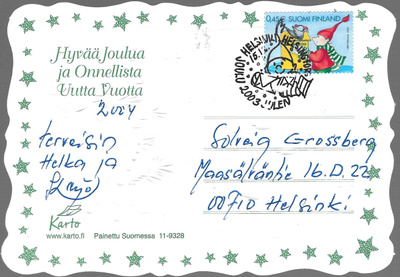 Hyvää Joulua
ja Onnellista
Uutta Vuotta
2004
terveisin
Helka ja
Karto
www.karto.fi Painettu Suomessa 11-9328
0,45 € SUOMI FINLAND
HELSINKI HELSINGFORS
JOULU 2003 JULEN
Solveig Grossberg
Maasälväntie 16.D.22
00710 Helsinki